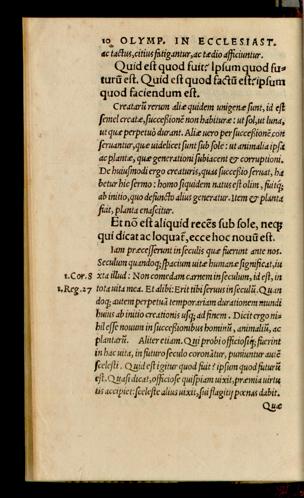 10 OLYMP. IN ECCLESIAST.
ac tactus, citius fatigantur, ac tædio afficiuntur.
Quid est quod fuit? Ipsum quod fu-
turũ est. Quid est quod factũ est? ipsum
quod faciendum est.
Creatarũ rerum aliæ quidem unigenæ sunt, id est
semel creatæ, successionẽ non habituræ: ut sol, ut luna,
ut quæ perpetuò durant. Aliæ uero per successionẽ con
seruantur, quæ uidelicet sunt sub sole: ut animalia ipsa
ac plantæ, quæ generationi subiacent & corruptioni.
De huiusmodi ergo creaturis, quas successio seruat, ha
betur hic sermo: homo siquidem natus est olim, fuitq;
ab initio, quo defuncto alius generatur. Item & planta
fuit, planta enascitur.
Et nõ est aliquid recẽs sub sole, neq;
qui dicat ac loquat, ecce hoc nouũ est.
Iam præcesserunt in seculis quæ fuerunt ante nos.
Seculum quandoq; spacium uitæ humanæ significat, iu
1. Cor. 8 xta illud: Non comedam carnem in seculum, id est, in
1. Reg. 27 tota uita mea. Et alibi: Erit tibi seruus in seculũ. Quan
doq; autem perpetuã temporariam durationem mundi
huius ab initio creationis usq; ad finem. Dicit ergo ni-
hil esse nouum in successionibus hominũ, animaliũ, ac
plantarũ. Aliter etiam. Qui probi officiosiq; fuerint
in hac uita, in futuro seculo coronãtur, puniuntur autẽ
scelesti. Quid est igitur quod fuit? ipsum quod futurũ
est. Quasi dicat, officiose quispiam uixit, præmia uirtu
tis accipiet: sceleste alius uixit, sui flagitij pœnas dabit.
Quæ